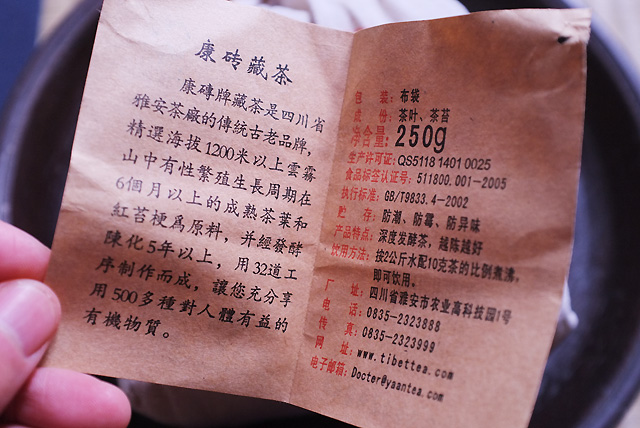 康砖藏茶
康磚牌藏茶是四川省
雅安茶廠的傳統古老品牌，
精選海拔1200米以上雲霧
山中有性繁殖生長周期在
6個月以上的成熟茶葉和
紅苔梗爲原料，并經發酵
陳化5年以上，用32道工
序制作而成，讓您充分享
用500多種對人體有益的
有機物質。
包 装：布袋
成 份：茶叶、茶苔
净含量：250g
生产许可证：QS5118 1401 0025
食品标签认证号：511800.001-2005
执行标准：GB/T9833.4-2002
贮 存：防潮、防霉、防异味
产品特点：深度发酵茶，越陈越好
饮用方法：按2公斤水配10克茶的比例煮沸，
即可饮用。
厂 址：四川省雅安市农业高科技园1号
电 话：0835-2323888
传 真：0835-2323999
网 址：www.tibettea.com
电子邮箱：Docter@yaantea.com